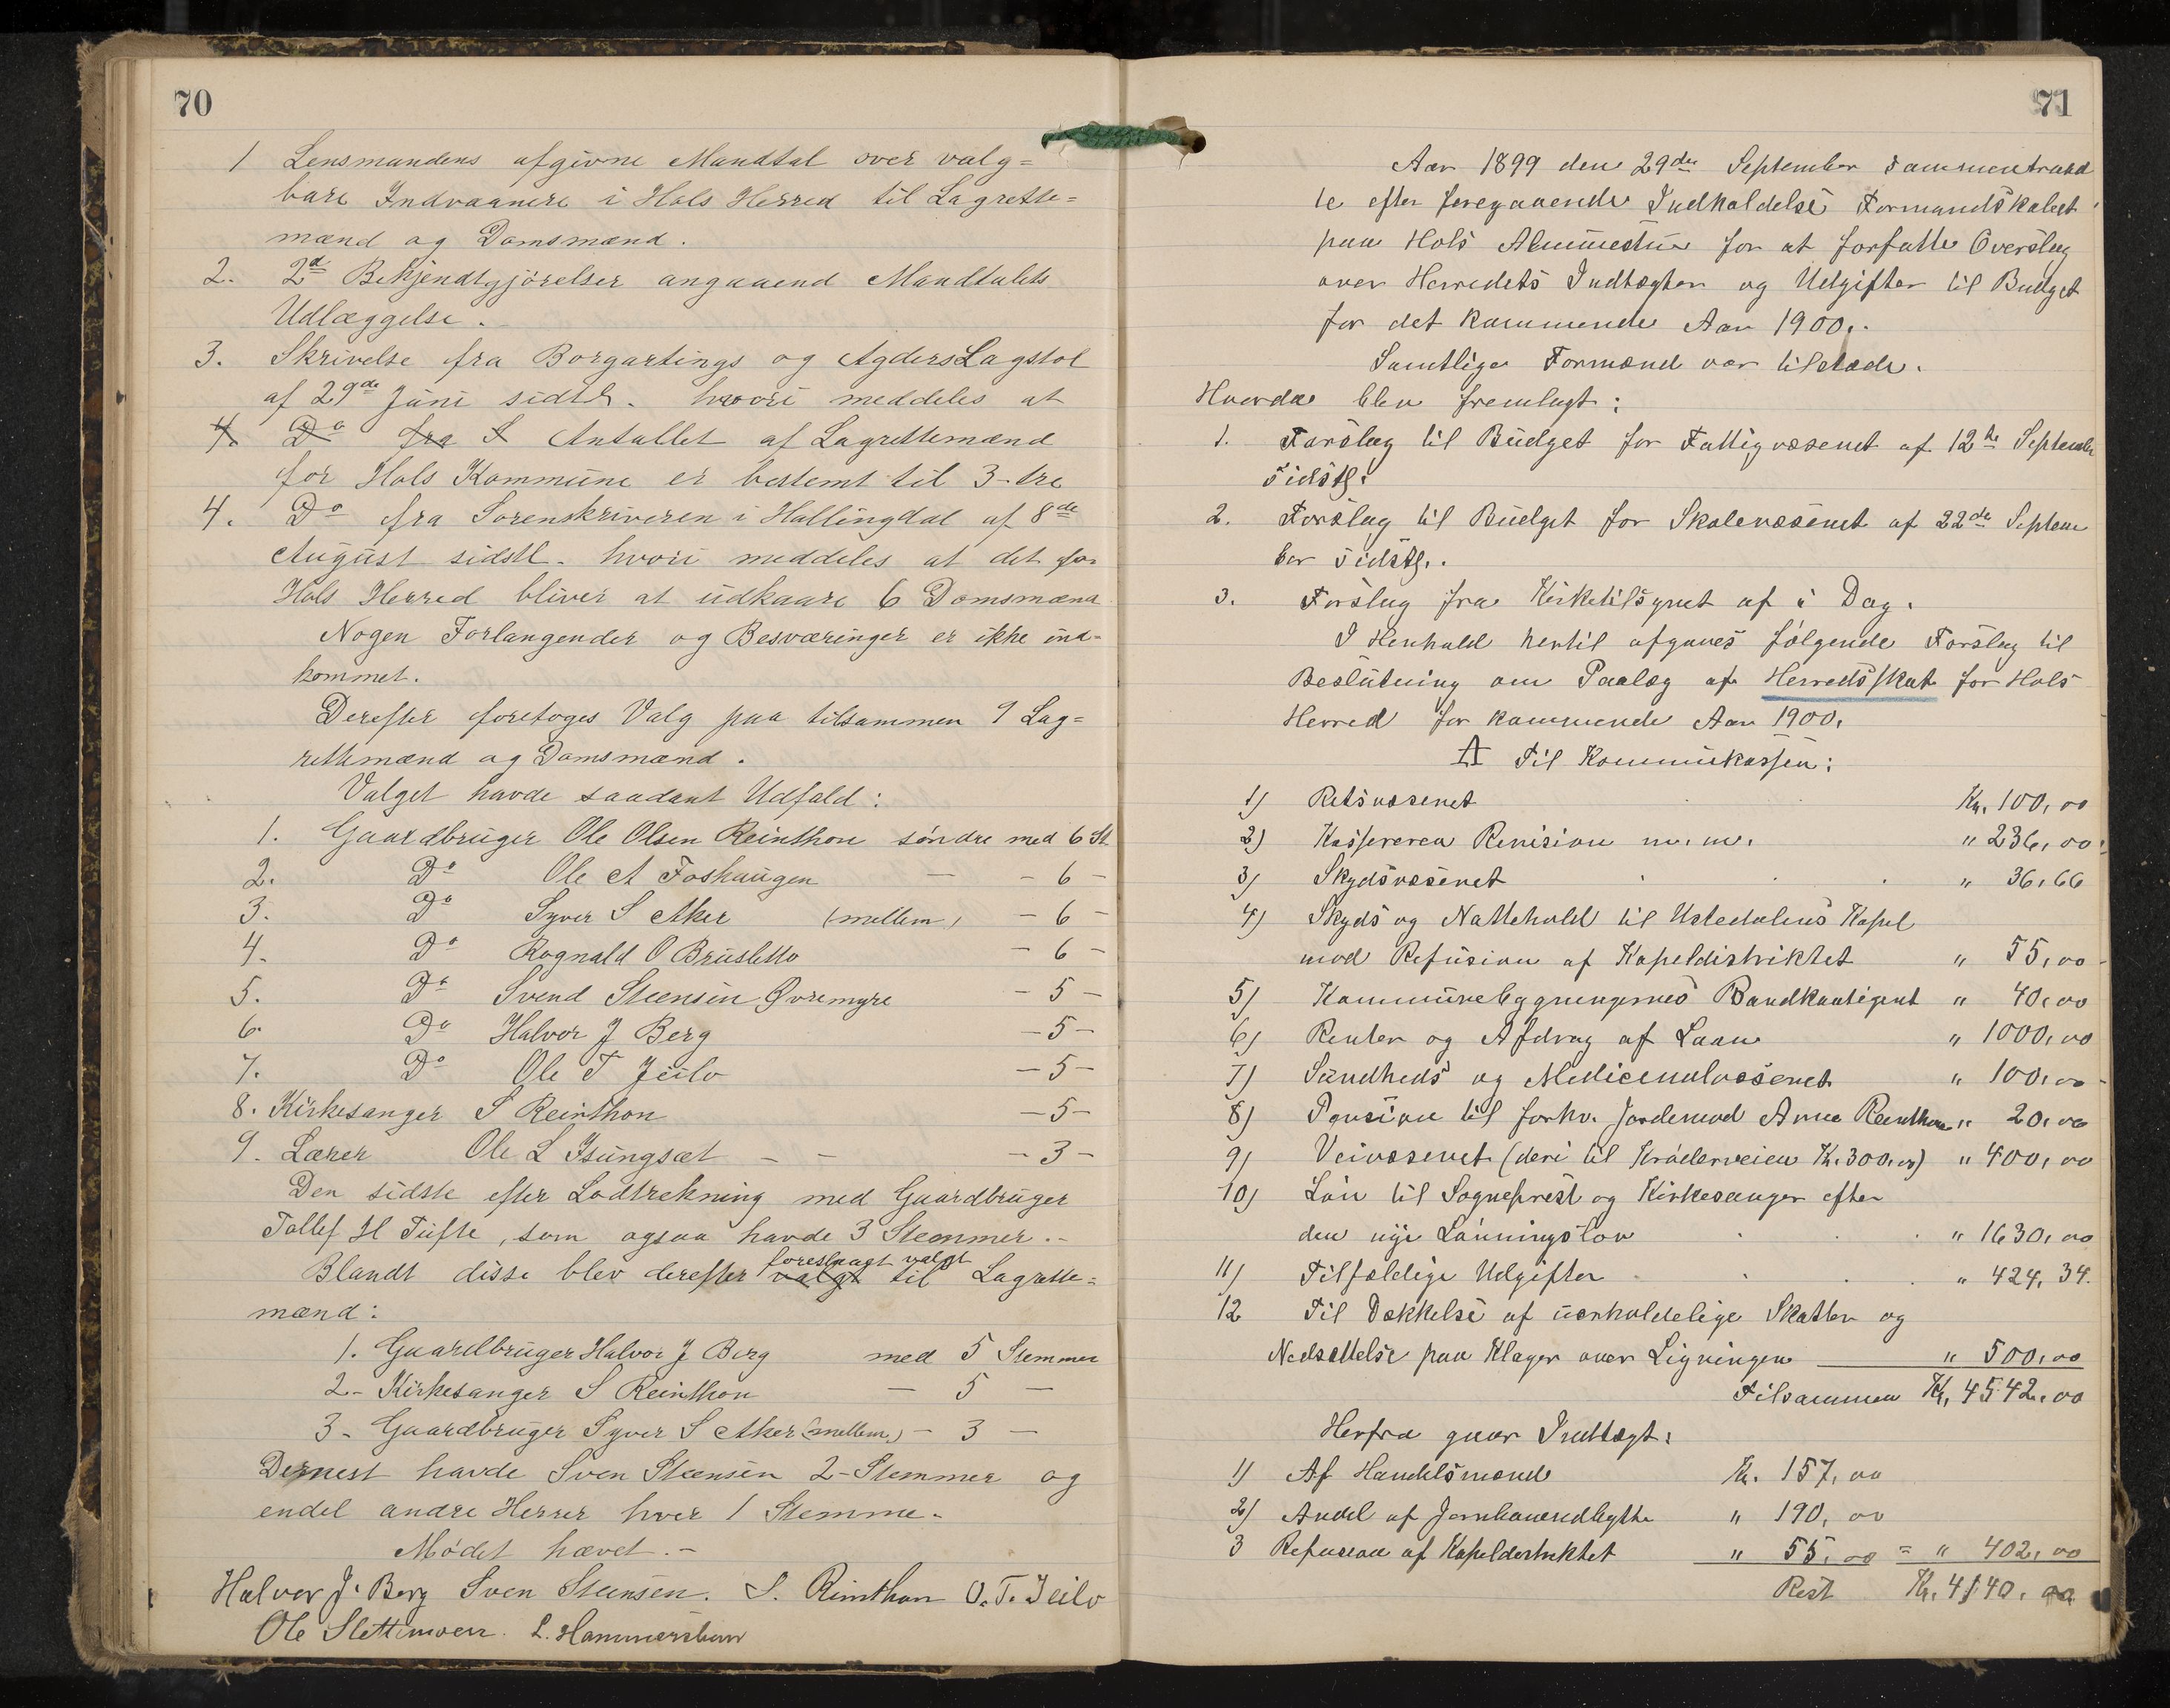 70
1 Lensmandens afgivne Mandtal over valg=
bare Indvaanere i Hols Herred til Lagrette=
mænd og Domsmænd.
2. 2d Bekjendtgjörelser angaaend Mandtalets
Udlæggelse.
3. Skrivelse fra Borgartings og Agders Lagstol
af 29de Juni sidstl. hvori meddeles at
4. Do fra S Antallet af Lagrettemænd
for Hols Kommune er bestemt til 3-tre
4. Do fra Sorenskriveren i Hallingdal af 8de
August sidstl. hvori meddeles at det for
Hols Herred bliver at udkaare 6 Domsmænd
Nogen Forlangender og Besværinger er ikke ind=
kommet.
Derefter foretoges Valg paa tilsammen 9 Lag=
rettemænd og Domsmænd.
Valget havde saadant Udfald:
1. Gaardbruger Ole Olsen Reinthon söndre med 6 St
2. Do Ole A Foshaugen — - 6 -
3. Do Syver S Aker (mellem) - 6 -
4. Do Rognald O Brusletto - 6 -
5. Do Svend Steensen Øvremyre - 5 -
6. Do Halvor J Berg - 5 -
7. Do Ole T Jeilo - 5 -
8. Kirkesanger S Reinthon - 5 -
9. Lærer Ole L Isungsæt - - - 3 -
Den sidste efter Lodtrekning med Gaardbruger
Tollef H Tufte, som ogsaa havde 3 Stemmer.-
foreslaagt valgt
Blandt disse blev derefter valgt til Lagrette=
mænd:
1. Gaardbruger Halvor J Berg med 5 Stemmer
2- Kirkesanger S Reinthon — 5 —
3- Gaardbruger Syver S Aker (mellem) - 3 —
Dernest havde Sven Steensen 2-Stemmer og
endel andre Herrer hver 1 Stemme.
Mödet hævet.-
Halvor J. Berg Sven Steensen. S. Rinthon O.T. Jeilo
Ole Slettemoen. L. Hammersbøen
71
Aar 1899 den 29de September sammentraad
te efter foregaaende Indkaldelse Formandskabet
paa Hols Almuestue for at forfatte Overslag
over Herredets Indtægter og Udgifter til Budget
for det kommende Aar 1900.
Samtlige Formænd var tilstæde.
Hvorda blev fremlagt:
1. Forslag til Budget for Fattigvæsenet af 12te September
sidstl.
2. Forslag til Budget for Skolevæsenet af 22de Septem
ber sidstl.
3. Forslag fra Kirketilsynet af i Dag.
I Henhold hertil afgaves fölgende Forslag til
Beslutning om Paalæg af Herredsskat for Hols
Herred for kommende Aar 1900.
A Til Kommunekassen:
1) Retsvæsenet Kr. 100,00
2) Kassereren Revision m.m. " 236,00
3) Skydsvæsenet " 36,66
4) Skyds og Nattehold til Ustedalens Kapel
mod Refusion af Kapeldistriktet " 55,00
5) Kommunebygningernes Brandkontigent " 40,00
6) Renter og Afdrag af Laan " 1000,00
7) Sundheds og Medicinalvæsenet " 100,00
8) Pension til forhv. Jordemod Anne Reinthon " 20,00
9) Veivæsenet (deri til Kröderveien Kr. 300,00) " 400,00
10) Lön til Sogneprest og Kirkesanger efter
den nye Lönningslov " 1630,00
11) Tilfældige Udgifter " 424,34.
12 Til Dækkelse af uerholdelige Skatter og
Nedsættelse paa Klager over Ligningen " 500,00
Tilsammen Kr. 4542,00
Herfra gaar Indtægt:
1) Af Handelsmænd Kr. 157,00
2) Andel af Jernbaneudbytte " 190,00
3 Refusion af Kapeldistriktet " 55,00 = " 402,00
Rest Kr. 4140,00